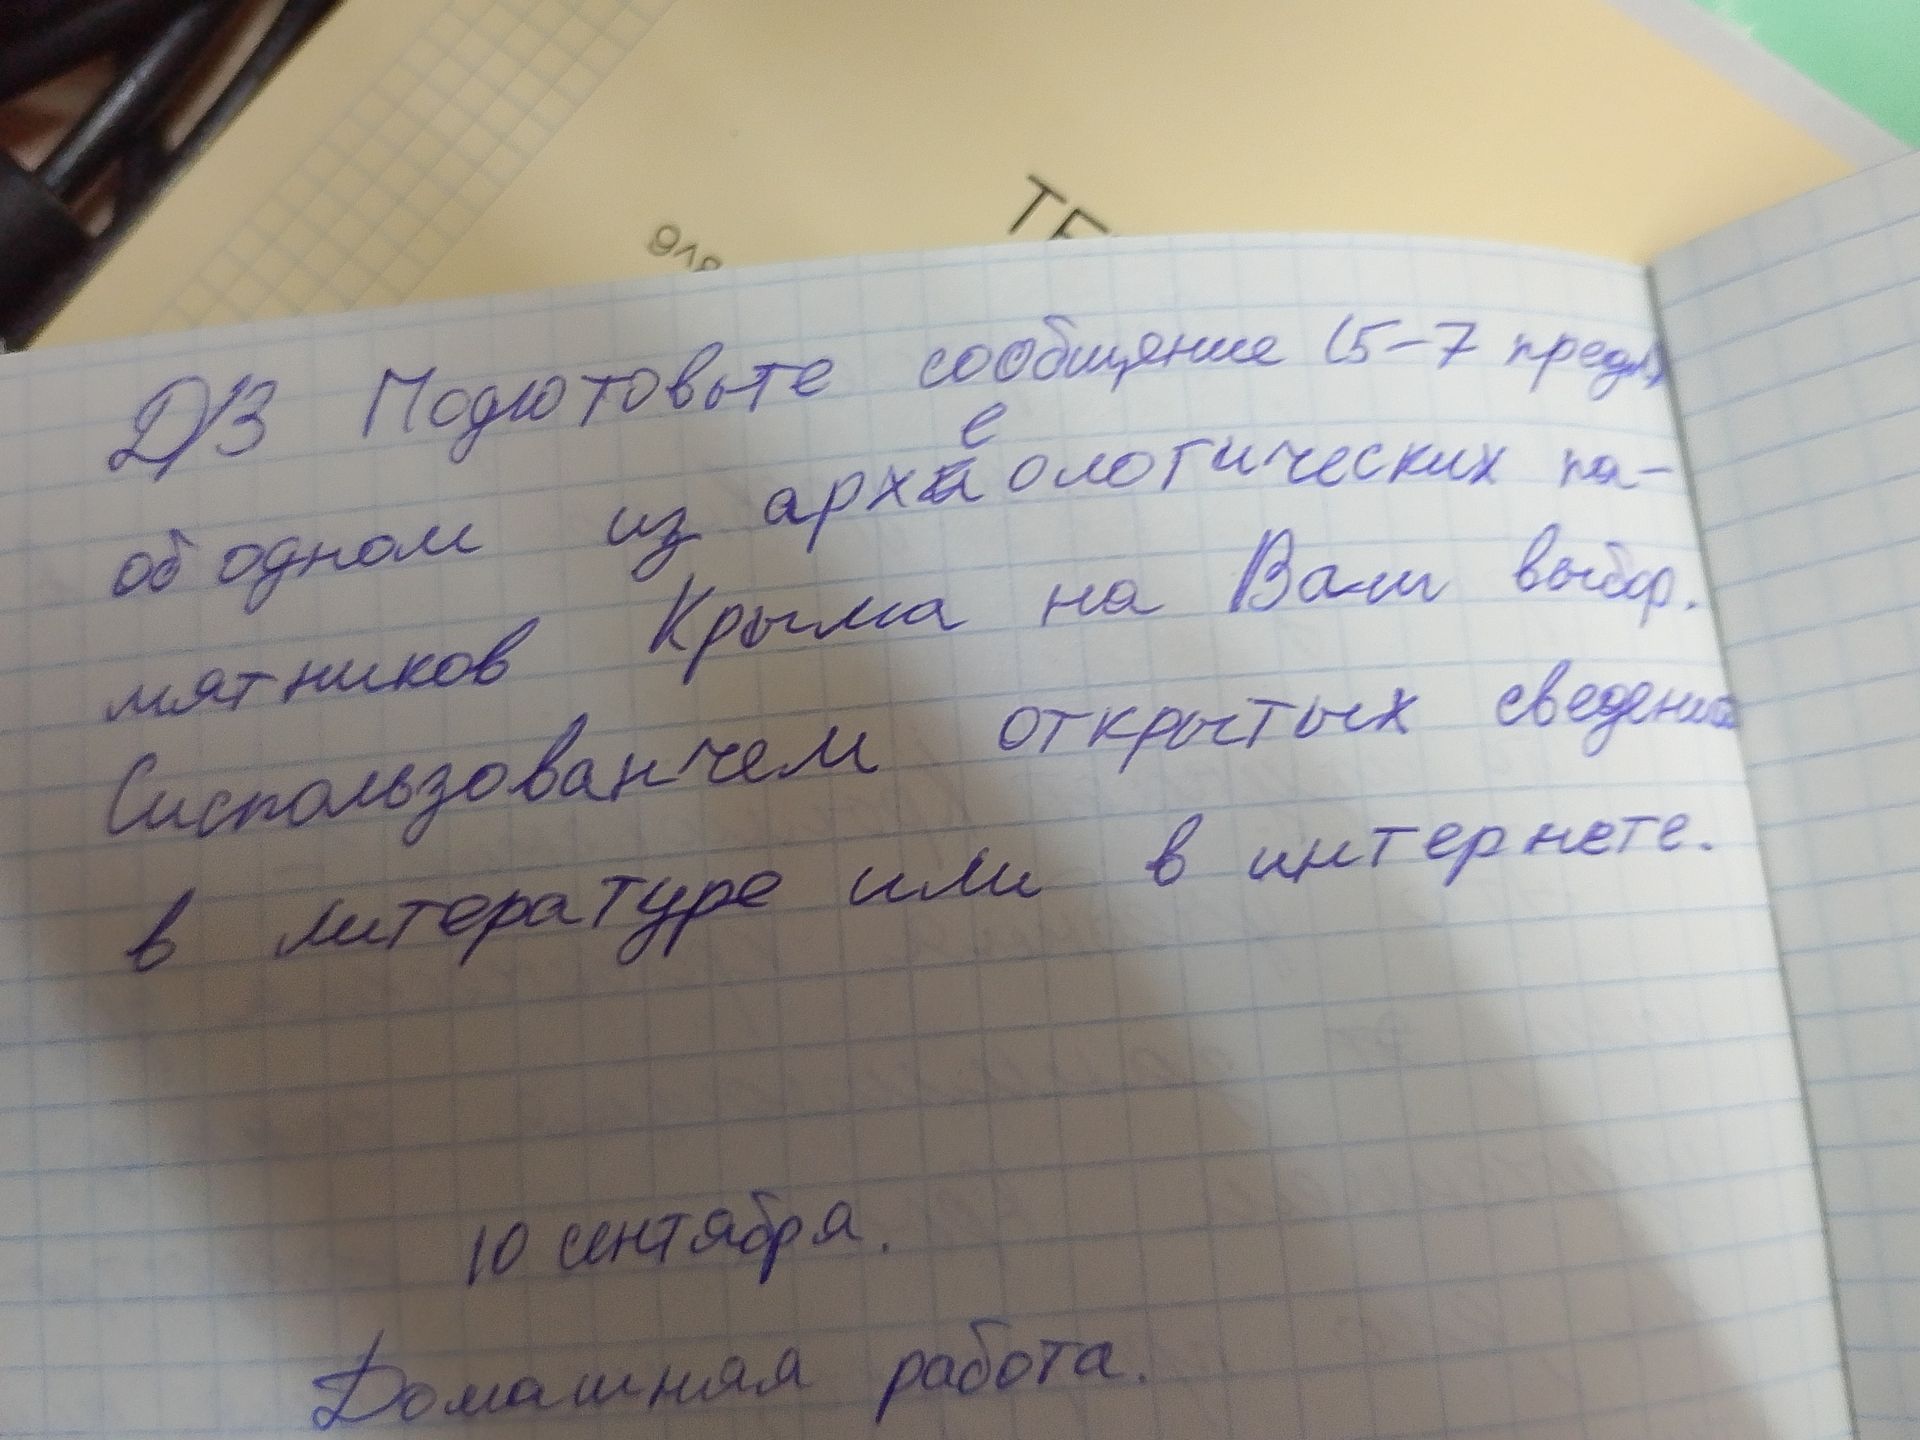 для
ТЕ
Д/З Подготовьте сообщение (5-7 предл)
об одном из археологических па-
мятников Крыма на Ваш выбор.
С использованием открытых сведений
в литературе или в интернете.
10 сентября.
Домашняя работа.